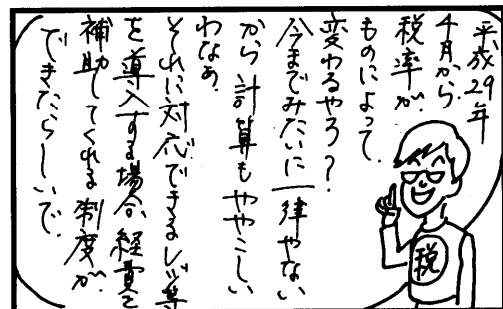 平成29年
4月から
税率が
ものによって
変わるやろ？
今までみたいに一律やない
から計算もややこしい
わなぁ
それに対応できるレジ等
を導入する場合、経費を
補助してくれる制度が
できたらしいで
税